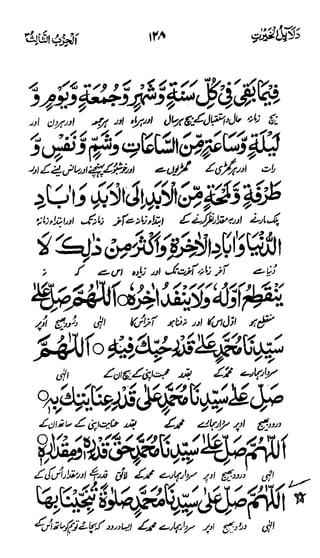 دَلَآئِلُ الْخَيْرٰتِ ١٢٨ اَلْحِزْبُ الثَّالِثُ ٣
فِيْمَا بَقِيَ فِيْ كُلِّ سَنَةٍ وَّشَهْرٍ وَّجُمُعَةٍ وَّيَوْمٍ وَّ
بیچ زمانہ حال واستقبال کے ہر سال اور ہر ماہ اور ہر جمعہ اور ہر دن اور
لَيْلَةٍ وَّسَاعَةٍ مِّنَ السَّاعَاتِ وَشَمٍّ وَّنَفَسٍ وَّ
رات اور ہر گھڑی کے گھڑیوں سے اور خوشبو کے پہنچنے اور سانس لینے کے اور
طَرْفَةٍ وَّلَمْحَةٍ مِّنَ الْاَبَدِ اِلَى الْاَبَدِ وَاٰبَادِ
پلک مارنے اور بمقدار نظر کرنے کے ابتداء زمانہ سے آخر زمانہ تک اور ابتداء زمانۂ
الدُّنْيَا وَاٰبَادِ الْاٰخِرَةِ وَاَكْثَرَ مِنْ ذٰلِكَ لَا
دنیا سے آخر زمانۂ آخرت تک اور زیادہ اس سے کہ نہ
يَنْقَطِعُ اَوَّلُهٗ وَلَا يَنْفَدُ اٰخِرُهٗ ۝ اَللّٰهُمَّ صَلِّ عَلٰى
منقطع ہو اوّل اس کا اور نہ فنا ہو آخر اس کا الٰہی درود بھیج اوپر
سَيِّدِنَا مُحَمَّدٍ عَلٰى قَدْرِ حُبِّكَ فِيْهِ ۝ اَللّٰهُمَّ
سردار ہمارے محمد کے بقدر محبت اپنی کے بیچ ان کے الٰہی
صَلِّ عَلٰى سَيِّدِنَا مُحَمَّدٍ عَلٰى قَدْرِ عِنَايَتِكَ بِهٖ ۝
درود بھیج اوپر سردار ہمارے محمد کے بقدر عنایت اپنی کے ساتھ ان کے
اَللّٰهُمَّ صَلِّ عَلٰى سَيِّدِنَا مُحَمَّدٍ حَقَّ قَدْرِهٖ وَمِقْدَارِهٖ
الٰہی درود بھیج اوپر سردار ہمارے محمد کے لائق قدر اور مقدار اس کی کے
اَللّٰهُمَّ صَلِّ عَلٰى سَيِّدِنَا مُحَمَّدٍ صَلٰوةً تُنَجِّيْنَا بِهَا
الٰہی درود بھیج اوپر سردار ہمارے محمد کے ایسا درود کہ بچائے تو ہم کو ساتھ اس کے